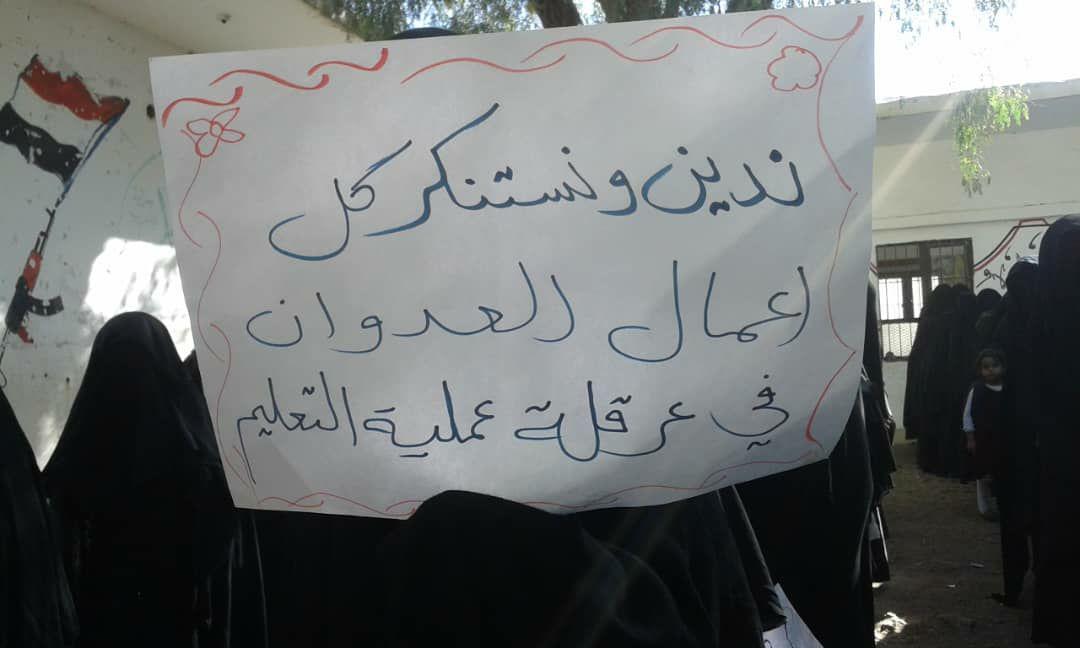 ندين ونستنكر كل
اعمال العدوان
في عرقلة عملية التعليم